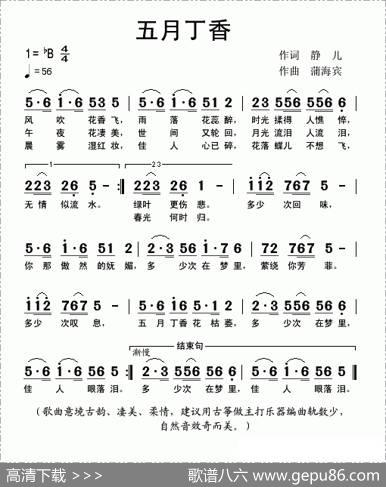 五月丁香
1=♭B 4/4
作词 静儿
♩=56
作曲 蒲海宾
5·6 i·6 53 5 | 5·6 i·6 51 2 | 23 556 556 6 |
风 吹 花香飞， 雨 落 花蕊醉， 时光揉得 人憔 悴，
午 夜 花凄美， 世 间 又轮回， 月光流泪 人流 泪，
晨 雾 湿红妆， 佳 人 心已碎， 花落蝶儿 不想 飞，
1 23
223 26 5 - :‖ 223 26 5 - :‖ i i2 767 5 - |
无情 似流 水。 绿叶 更伤 悲。 多少 次回 味，
春光 何时 归。
5·6 i·6 5 6 | 2·3 56 5 6 | i 72 76 5 - |
你 那 傲然的妩媚， 多 少次在梦里， 萦绕 你芳 菲。
i i2 767 5 - | 5·6 i·6 5 6 | 2·3 556 56 6 |
多少 次叹 息， 五 月丁香花 枯萎， 多 少次 在梦里，
结束句
渐慢
5·6 i·6 53 5 :‖ 2·3 556 56 6 | 5·6 i·6 53 5 ‖
佳 人 眼落泪。 多 少次 在梦里， 佳 人 眼落泪。
（歌曲意境古韵、凄美、柔情，建议用古筝做主打乐器编曲轨数少，
自然音效奇而美。）
高清下载 >>> 歌谱八六 www.gepu86.com